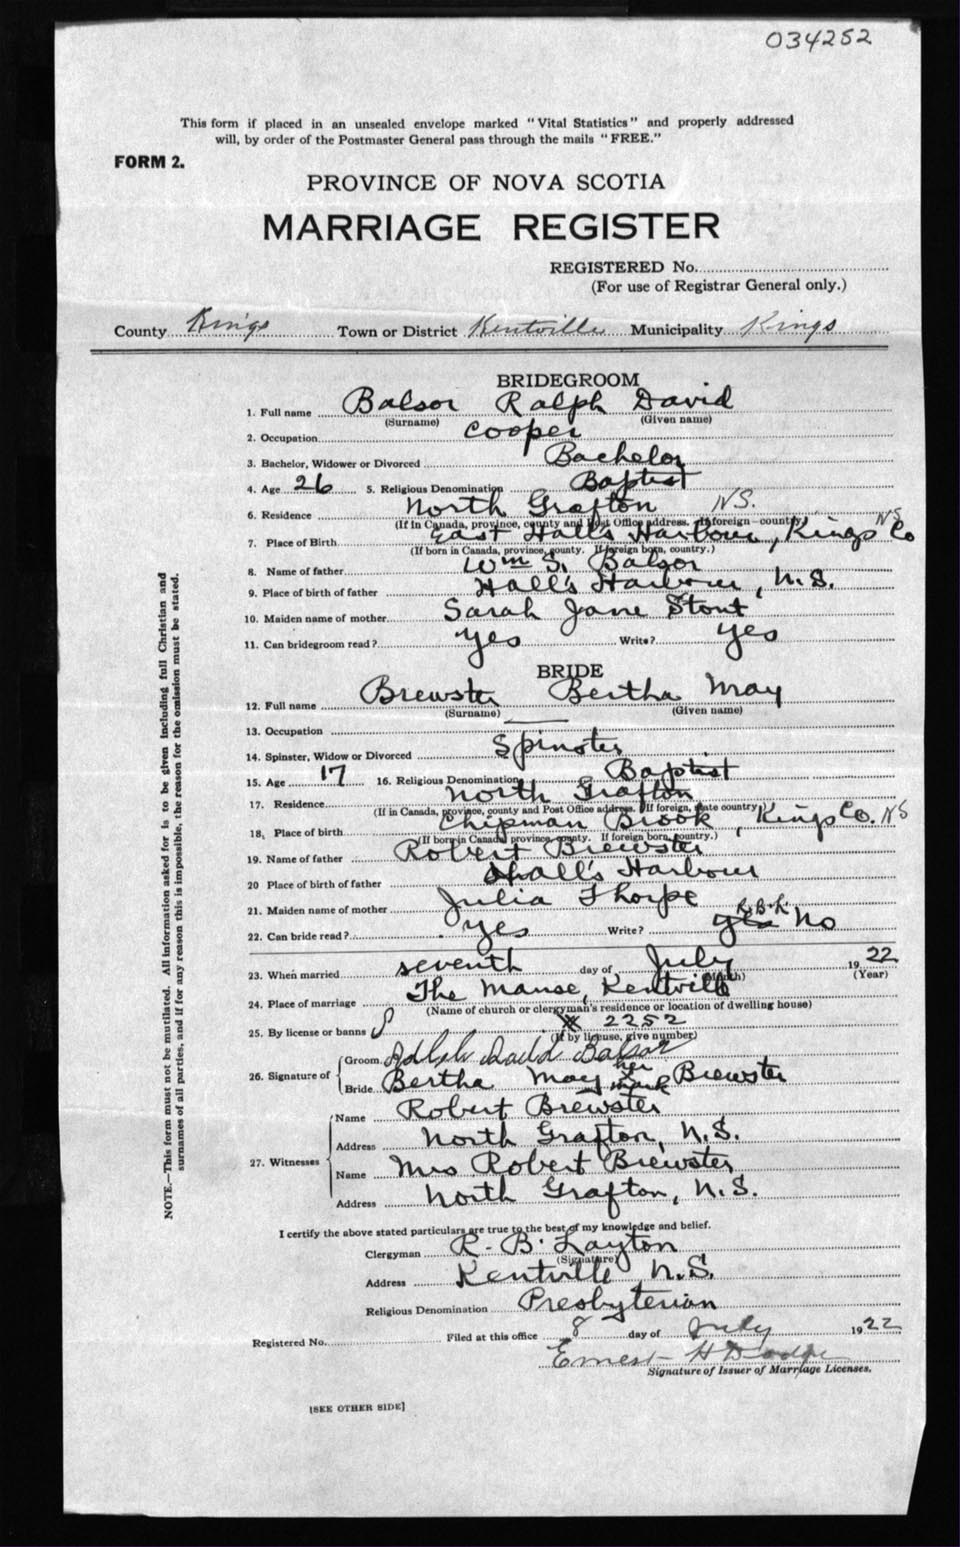 034252
This form if placed in an unsealed envelope marked "Vital Statistics" and properly addressed
will, by order of the Postmaster General pass through the mails "FREE."
FORM 2.
PROVINCE OF NOVA SCOTIA
MARRIAGE REGISTER
REGISTERED No.
(For use of Registrar General only.)
County Kings Town or District Kentville Municipality Kings
BRIDEGROOM
1. Full name Balsor Ralph David
(Surname) (Given name)
2. Occupation Cooper
3. Bachelor, Widower or Divorced Bachelor
4. Age 26 5. Religious Denomination Baptist
6. Residence North Grafton NS.
(If in Canada, province, county and Post Office address. If foreign—country)
7. Place of Birth East Hall's Harbour, Kings Co NS
(If born in Canada, province, county. If foreign born, country.)
8. Name of father Wm S. Balsor
9. Place of birth of father Hall's Harbour, N.S.
10. Maiden name of mother Sarah Jane Stout
11. Can bridegroom read? Yes Write? Yes
BRIDE
12. Full name Brewster Bertha May
(Surname) (Given name)
13. Occupation
14. Spinster, Widow or Divorced Spinster
15. Age 17 16. Religious Denomination Baptist
17. Residence North Grafton
(If in Canada, province, county and Post Office address. If foreign, state country)
18. Place of birth Chipman Brook, Kings Co. NS
(If born in Canada province, county. If foreign born, country.)
19. Name of father Robert Brewster
20 Place of birth of father Hall's Harbour
21. Maiden name of mother Julia Thorpe
22. Can bride read? Yes Write? yes R.B.L. No
23. When married seventh day of July 1922
(Month) (Year)
24. Place of marriage The Manse, Kentville
(Name of church or clergyman's residence or location of dwelling house)
25. By license or banns 2252
(If by license, give number)
26. Signature of Groom David Balsor
Bride Bertha May her mark Brewster
27. Witnesses Name Robert Brewster
Address North Grafton, N.S.
Name Mrs Robert Brewster
Address North Grafton, N.S.
I certify the above stated particulars are true to the best of my knowledge and belief.
Clergyman R. B. Layton
(Signature)
Address Kentville N.S.
Religious Denomination Presbyterian
Registered No. Filed at this office 8 day of July 1922
Ernest H Dodge
Signature of Issuer of Marriage Licenses.
[SEE OTHER SIDE]
NOTE.—This form must not be mutilated. All information asked for is to be given including full Christian and
surnames of all parties, and if for any reason this is impossible, the reason for the omission must be stated.